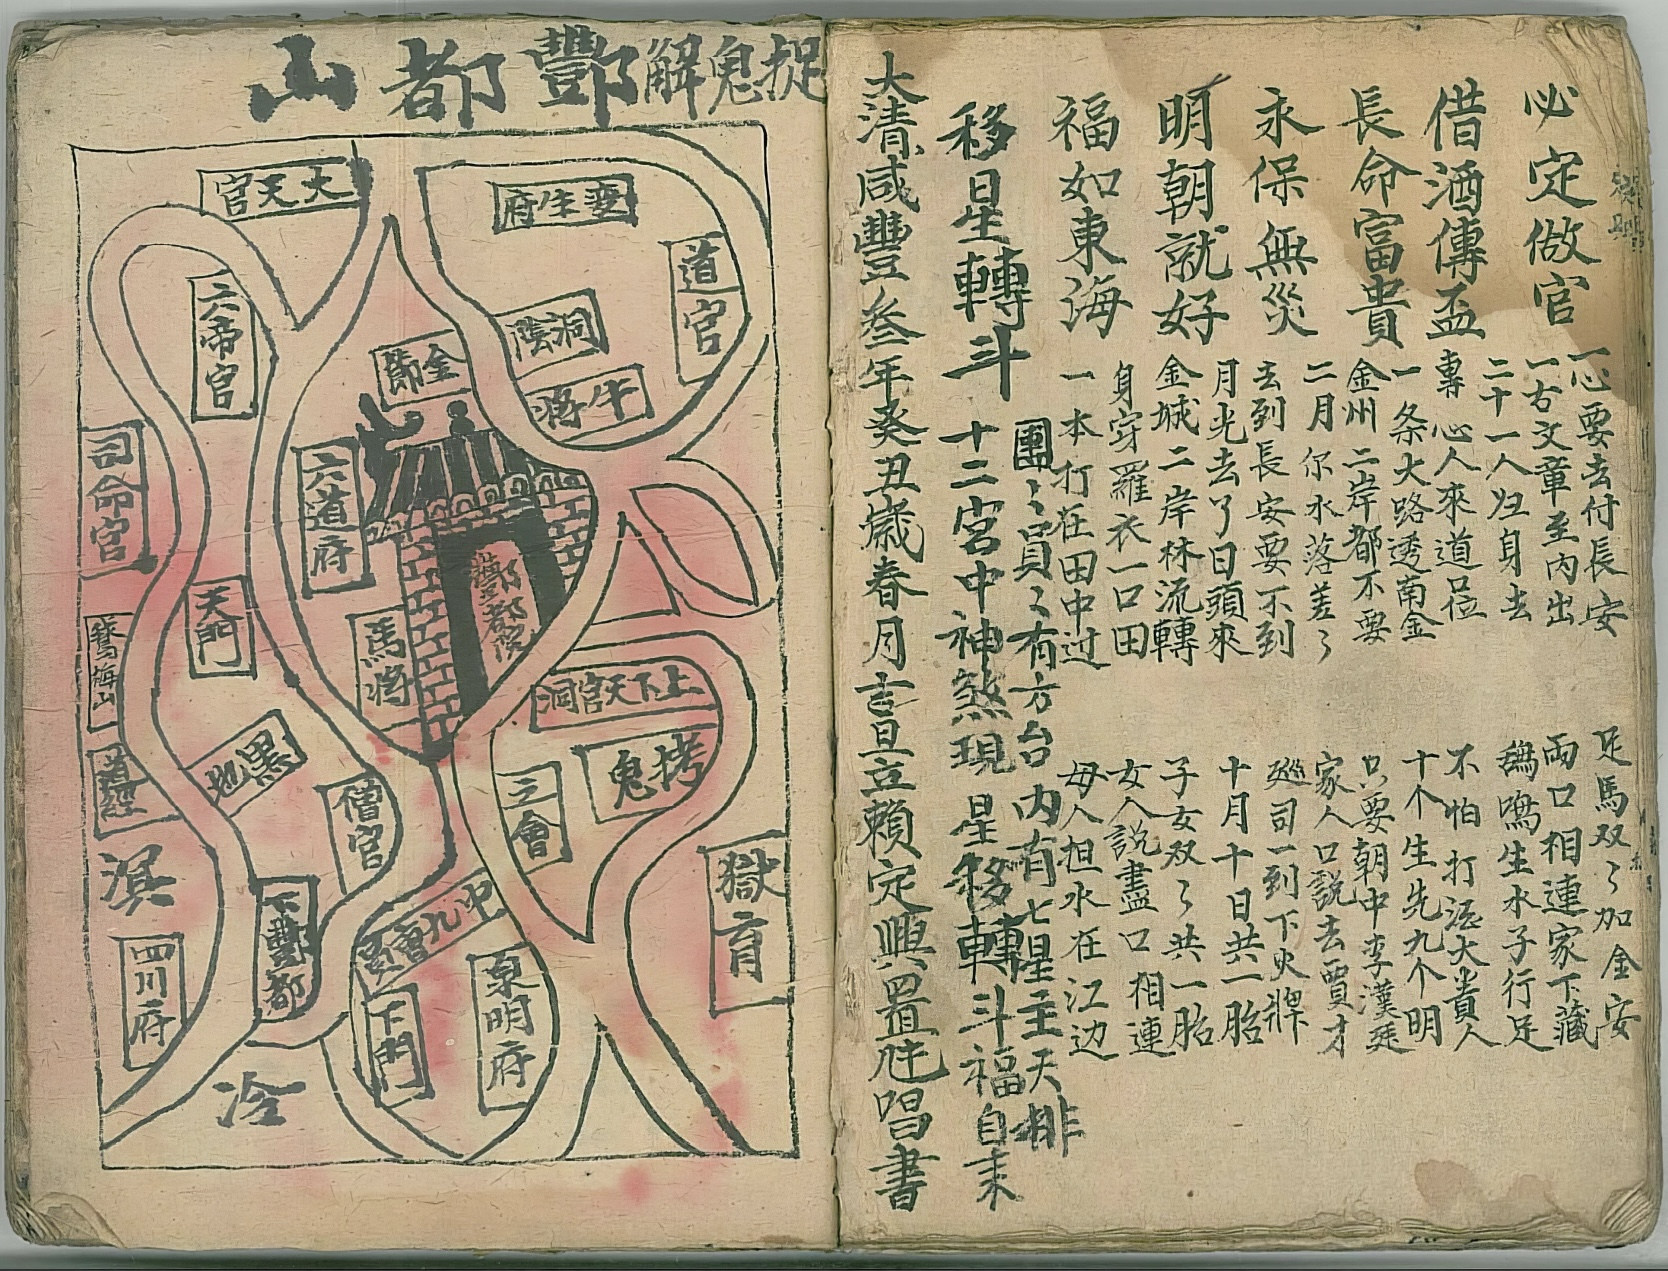 必定做官
借酒傳盃
長命富貴
永保無災
明朝就好
福如東海
移星轉斗
一心要去付長安
一古文章至內出
二十一人归身去
專心人來道位
一条大路透南金
金州二岸都不要
二月尔水落差〻
去到長安要不到
月光去了日頭來
金城二岸林流轉
身穿羅衣一口田
一本打在田中过
足馬双〻加金安
兩口相連家下藏
生水子行足
不怕打酒大貴人
十个生先九个明
只要朝中李漢廷
家人口說去買才
巡司一到下火牌
十月十日共一胎
子女双〻共一胎
女人說盡口相連
母人担水在江边
團〻員〻有方台內有七星主天排
十二宮中神煞現星移轉斗福自来
大清咸豐叁年癸丑歲春月吉旦立賴定興置 唱書
捉鬼解酆都山
大天宮
府
道宮
六帝宮
洞陰
金節
牛將
司命宮
六道府
酆都院
天門
馬將
上下天宮洞
拷鬼
黑地
三會
僧官
道經
獄育
溟
四川府
下酆都
中九宮
泉明府
下門
冷